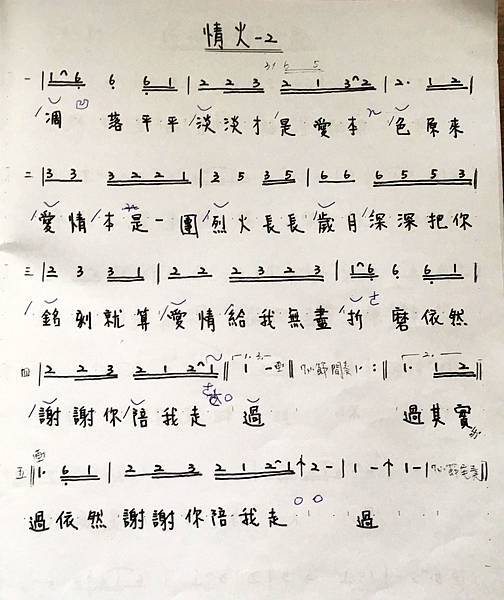 情火-2
3/ 6 5
一 | 1^6 6 6 1 | 2 2 3 2 1 3^2 | 2. 1 2 |
凋 落平平淡淡才是愛本 色原來
二 | 3 3 3 2 2 1 | 2 3 3 5 | 6 6 6 5 5 3 |
愛情本是一團烈火長長歲月深深把你
三 | 2 3 3 1 | 2 2 2 3 2 3 | 1^6 6 6 1 |
銘刻就算愛情給我無盡折 磨依然
四 | 2 2 3 2 1 2^1 | 1 - | 間奏 1. :| 1. 1 2 |
謝謝你陪我走 過 過其實
五 | 1. 6 1 | 2 2 3 2 1 2^1 ↑ 2 - | 1 - ↑ 1 - |
過依然 謝謝你陪我走 過